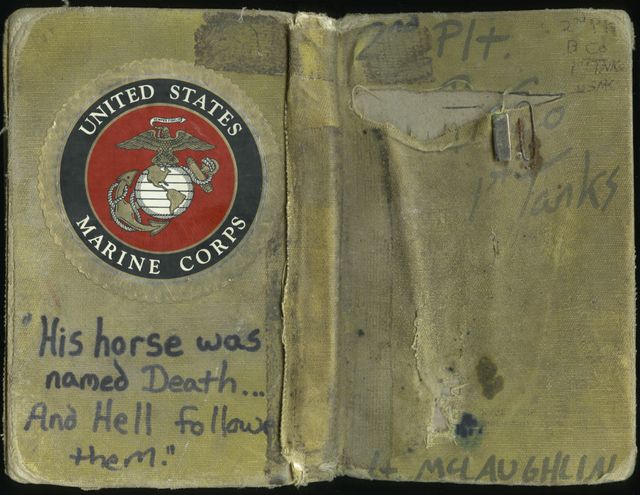 UNITED STATES
MARINE CORPS
"His horse was
named Death...
And Hell followe
them."
2nd Plt.
Co
1st Tanks
lt McLAUGHLIN
2nd Plt
B Co
1st TNKS
USMC